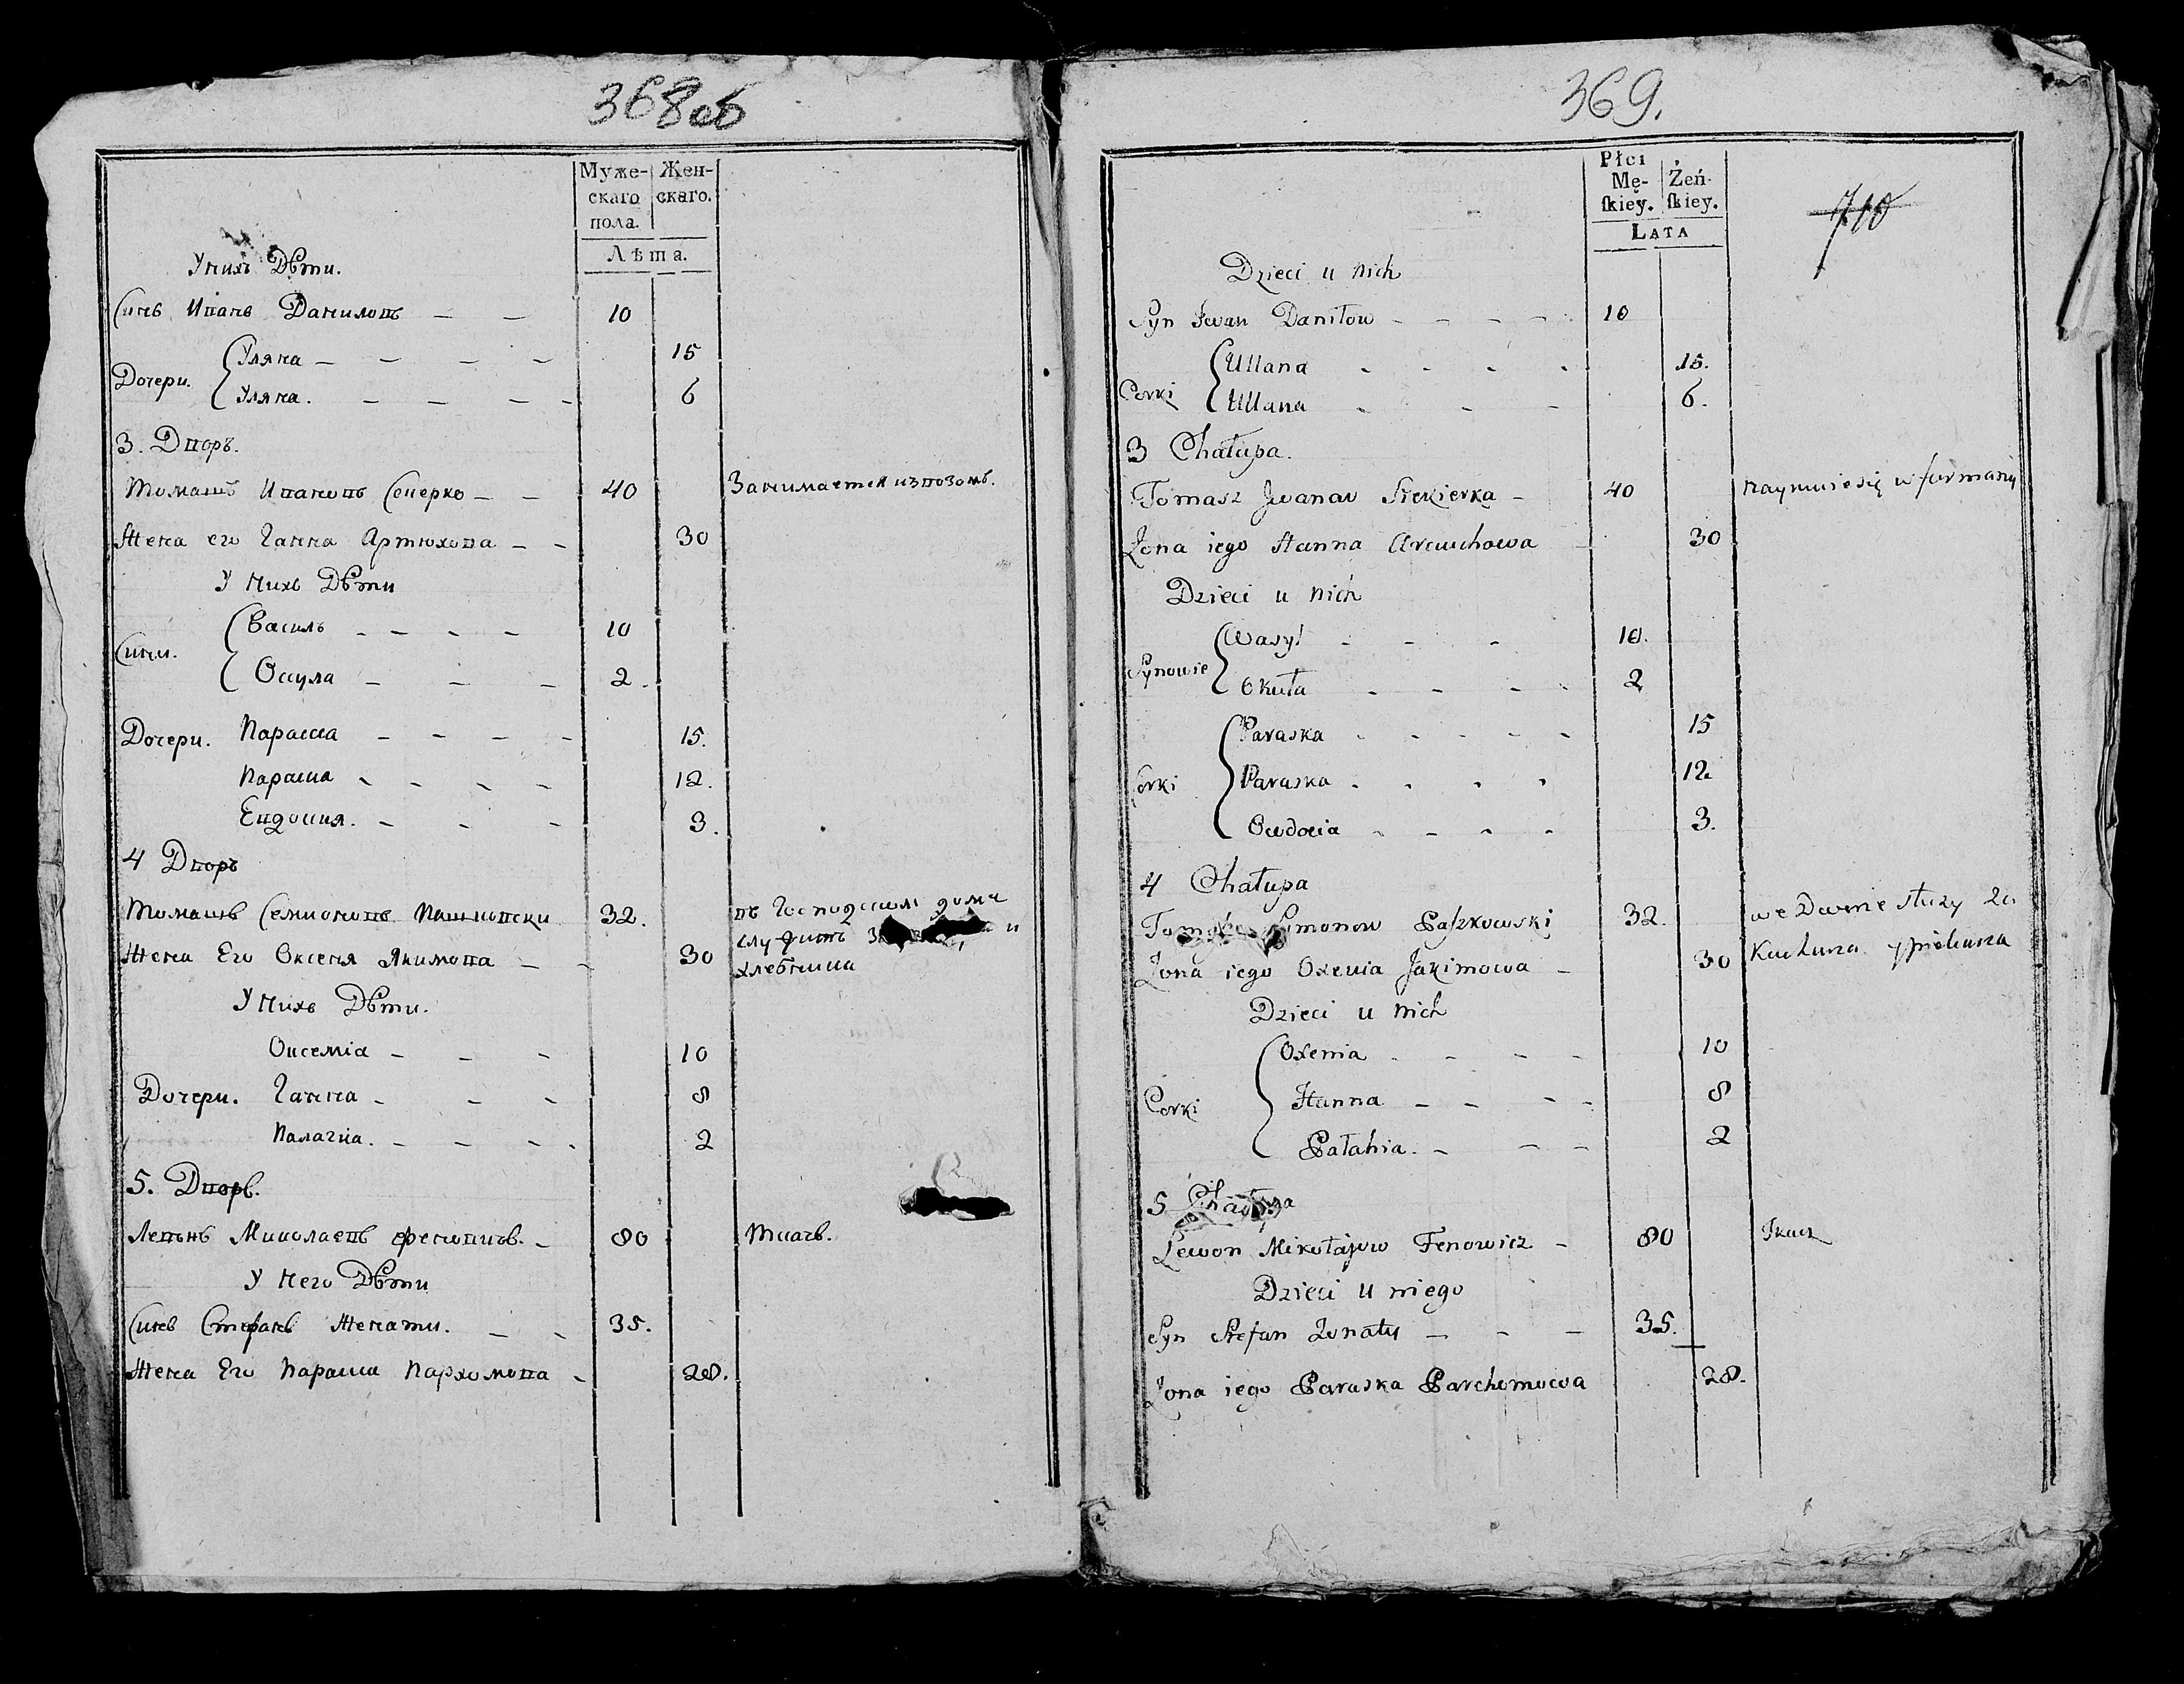 368об
Муже- Жен-
скаго скаго.
пола.
Лѣта.
У нихъ Дѣти.
Синъ Иванъ Даниловъ — — 10
Уляна — — — — 15
Дочери.
Уляна. — — — — 6
3. Дворъ.
Томашъ Ивановъ Секерко — — 40 Занимается извозомъ.
Жена его Ганна Артюхова — — 30
У нихъ Дѣти
Василь — — — — 10
Сини.
Окула — — — 2.
Дочери. Параска — — — — 15.
Параска — — — — 12.
Евдокия. — — — 3.
4 Дворъ
Томашъ Семионовъ Пашковски 32. въ Господскомъ доме
служитъ и
Жена Его Оксеня Якимова — — 30
хлебника
У нихъ Дѣти.
Оксеміа — — — 10
Дочери. Ганна — — — 8
Палагиа. — — — — 2
5. Дворъ.
Левонъ Миколаевъ Феновичъ. — 80 Ткачъ.
У Него Дѣти
Синъ Стефанъ Женати. — — 35.
Жена Его Параска Пархомова — 28.
369.
Płci
Mę- Żeń-
ſkiey. ſkiey.
LATA
710
Dzieci u nich
Syn Iwan Daniłow — — — — 10
Ullana - - - - 15.
Corki
Ullana - - - 6.
3 Chałupa.
Tomasz Iwanow Siekierka — 40 naymuie się w furmanię
Zona iego Hanna Arciuchowa — 30
Dzieci u nich
Wasyl - - - 10.
Synowie
Okuła - - - - 2
Paraska - - - - - 15
Corki Paraska - - - - 12
Owdocia - - - - 3.
4 Chałupa
Tomasz Symonow Paſzkowski 32. we Dworie słuzy za
Kucharza y piekarza
Zona iego Oxenia Jakimowa — 30
Dzieci u nich
Oxenia - - - - 10
Corki Hanna — — - - 8
Pałahia. — — — 2
5 Chałupa
Lewon Mikołajow Fenowicz — 80 Tkacz
Dzieci u niego
Syn Stefan Zonaty — — — 35.
Zona iego Paraska Parchomowa 28.